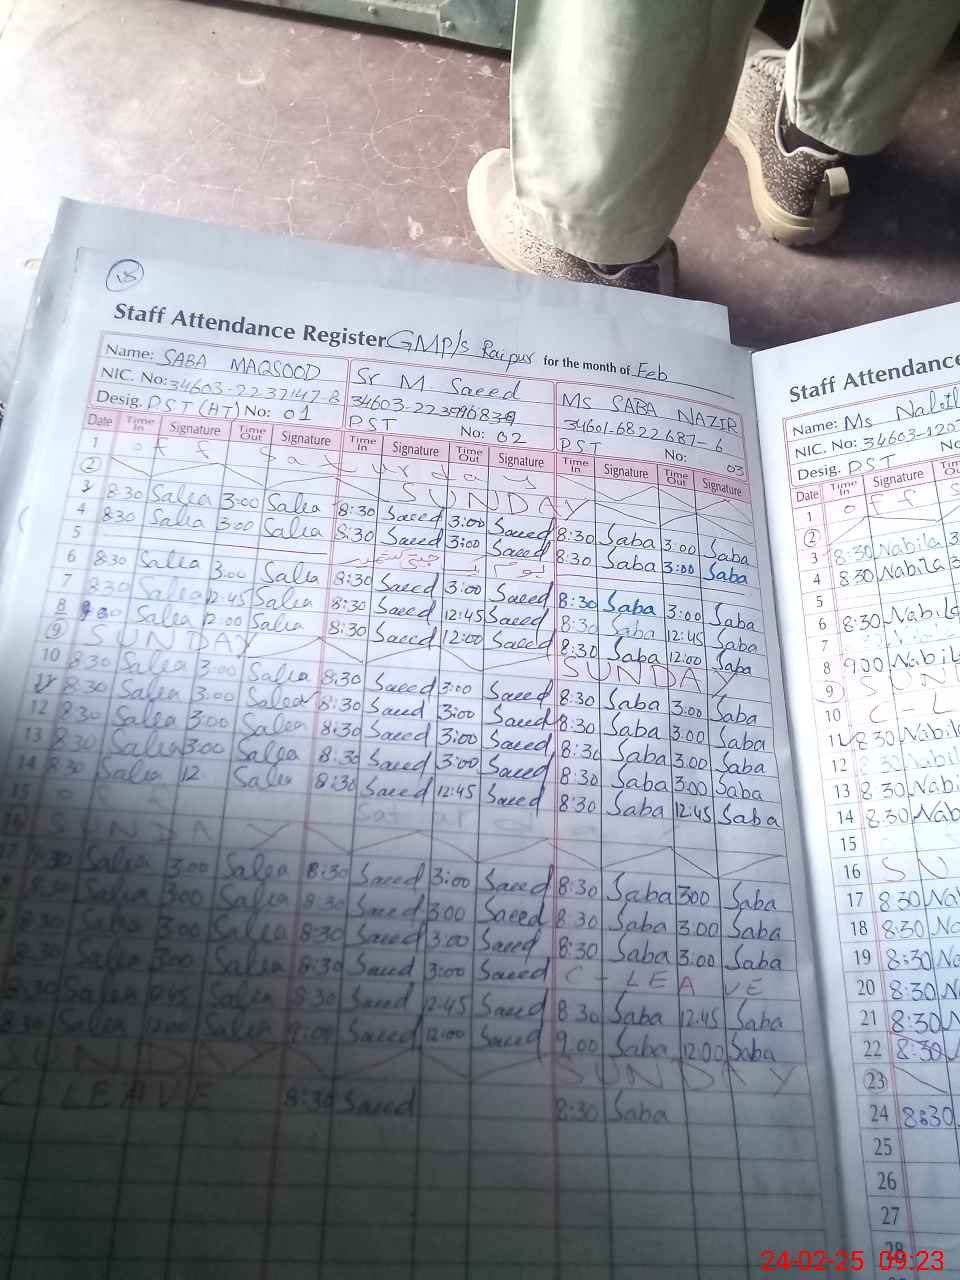 18
Staff Attendance Register GMP/s Raipur for the month of Feb
Name: SABA MAQSOOD Sr M. Saeed Ms SABA NAZIR
NIC. No: 34603-2237147-8 34601-6822687-6
Desig. PST (HT) No: 01 PST No: 02 PST No: 03
Date Time In Signature Time Out Signature Time In Signature Time Out Signature Time In Signature Time Out Signature
1 off Saturday
2 SUNDAY
3 8:30 Salea 3:00 Salea 8:30 Saeed 3:00 Saeed 8:30 Saba 3:00 Saba
4 8:30 Salea 3:00 Salea 8:30 Saeed 3:00 Saeed 8:30 Saba 3:00 Saba
5
6 8:30 Salea 3:00 Salea 8:30 Saeed 3:00 Saeed 8:30 Saba 3:00 Saba
7 8:30 Salea 12:45 Salea 8:30 Saeed 12:45 Saeed 8:30 Saba 12:45 Saba
8 Salea 12:00 Salea 8:30 Saeed 12:00 Saeed 8:30 Saba 12:00 Saba
9 SUNDAY SUNDAY
10 8:30 Salea 3:00 Salea 8:30 Saeed 3:00 Saeed 8:30 Saba 3:00 Saba
11 8:30 Salea 3:00 Salea 8:30 Saeed 3:00 Saeed 8:30 Saba 3:00 Saba
12 8:30 Salea 3:00 Salea 8:30 Saeed 3:00 Saeed 8:30 Saba 3:00 Saba
13 8:30 Salea 3:00 Salea 8:30 Saeed 3:00 Saeed 8:30 Saba 3:00 Saba
14 8:30 Salea 12: Salea 8:30 Saeed 12:45 Saeed 8:30 Saba 12:45 Saba
15 off Saturday
16 SUNDAY
17 8:30 Salea 3:00 Salea 8:30 Saeed 3:00 Saeed 8:30 Saba 3:00 Saba
8:30 Salea 3:00 Salea 8:30 Saeed 3:00 Saeed 8:30 Saba 3:00 Saba
8:30 Salea 3:00 Salea 8:30 Saeed 3:00 Saeed 8:30 Saba 3:00 Saba
8:30 Salea 3:00 Salea 8:30 Saeed 3:00 Saeed C-LEAVE
8:30 Salea 12:45 Salea 8:30 Saeed 12:45 Saeed 8:30 Saba 12:45 Saba
8:30 Salea 12:00 Salea 9:00 Saeed 12:00 Saeed 9:00 Saba 12:00 Saba
SUNDAY SUNDAY
C-LEAVE 8:30 Saeed 8:30 Saba
Staff Attendance
Name: Ms
NIC. No: 34603-1207
Desig. PST
Date Time In Signature
1 off S
2
3 8:30 Nabila 3
4 8:30 Nabila 3
5
6 8:30 Nabila
7
8 9:00 Nabil
9 SUN
10 C-L
11 8:30 Nabil
12 8:30 Nabil
13 8:30 Nabi
14 8:30 Nab
15
16 SU
17 8:30 Na
18 8:30 Na
19 8:30 Na
20 8:30 N
21 8:30 N
22 8:30
23
24 8:30
25
26
27
28
24-02-25 09:23